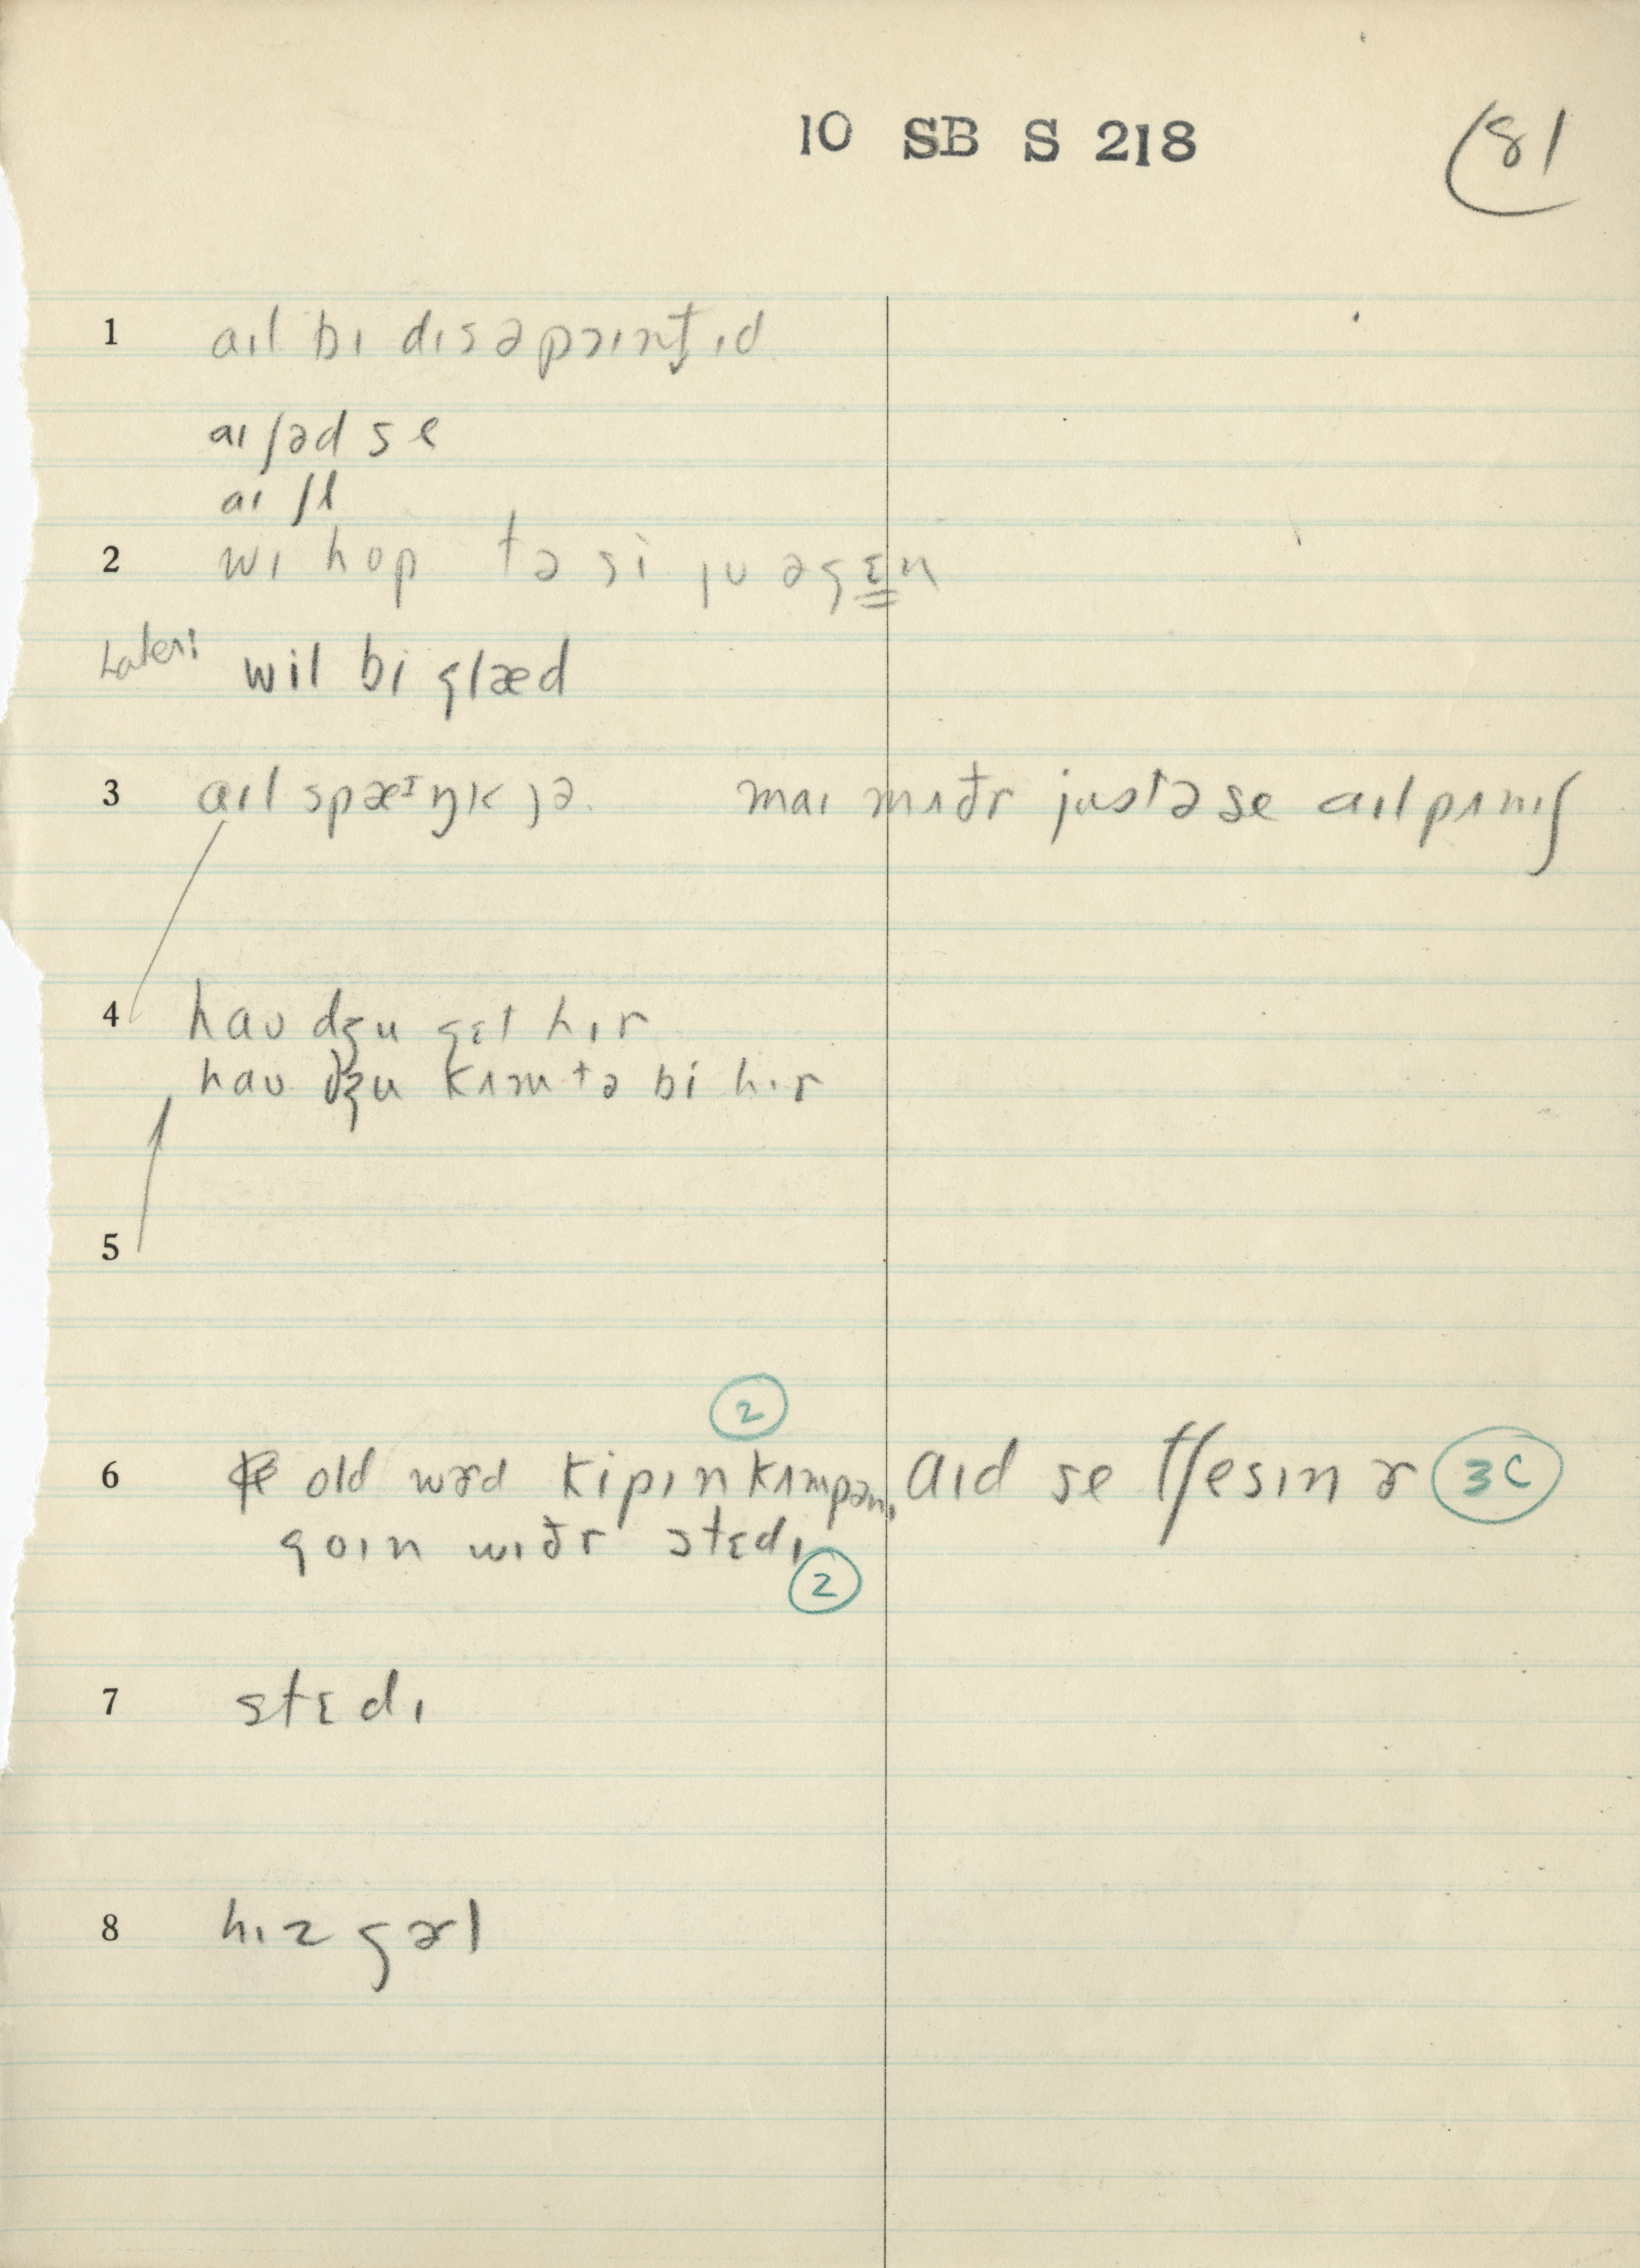 10 SB S 218
81
1 aɪl bɪ dɪsəpɔɪnt̬ɪd
aɪ ʃəd se
aɪ ʃl
2 wɪ hop tə si ju əgɛn
Later: wil bi glæd
3 aɪl spæᶦŋk jə. maɪ mʌðr justə se aɪl pʌnɪʃ
4 haʊ dʒu gɛt hɪr
haʊ dʒu kʌm tə bi hɪr
5
2
6 old wɚd kipɪn kʌmpənɪ aɪd se tʃesɪn ɚ 3C
goɪn wɪðr stɛdɪ
2
7 stɛdɪ
8 hɪz gɚl